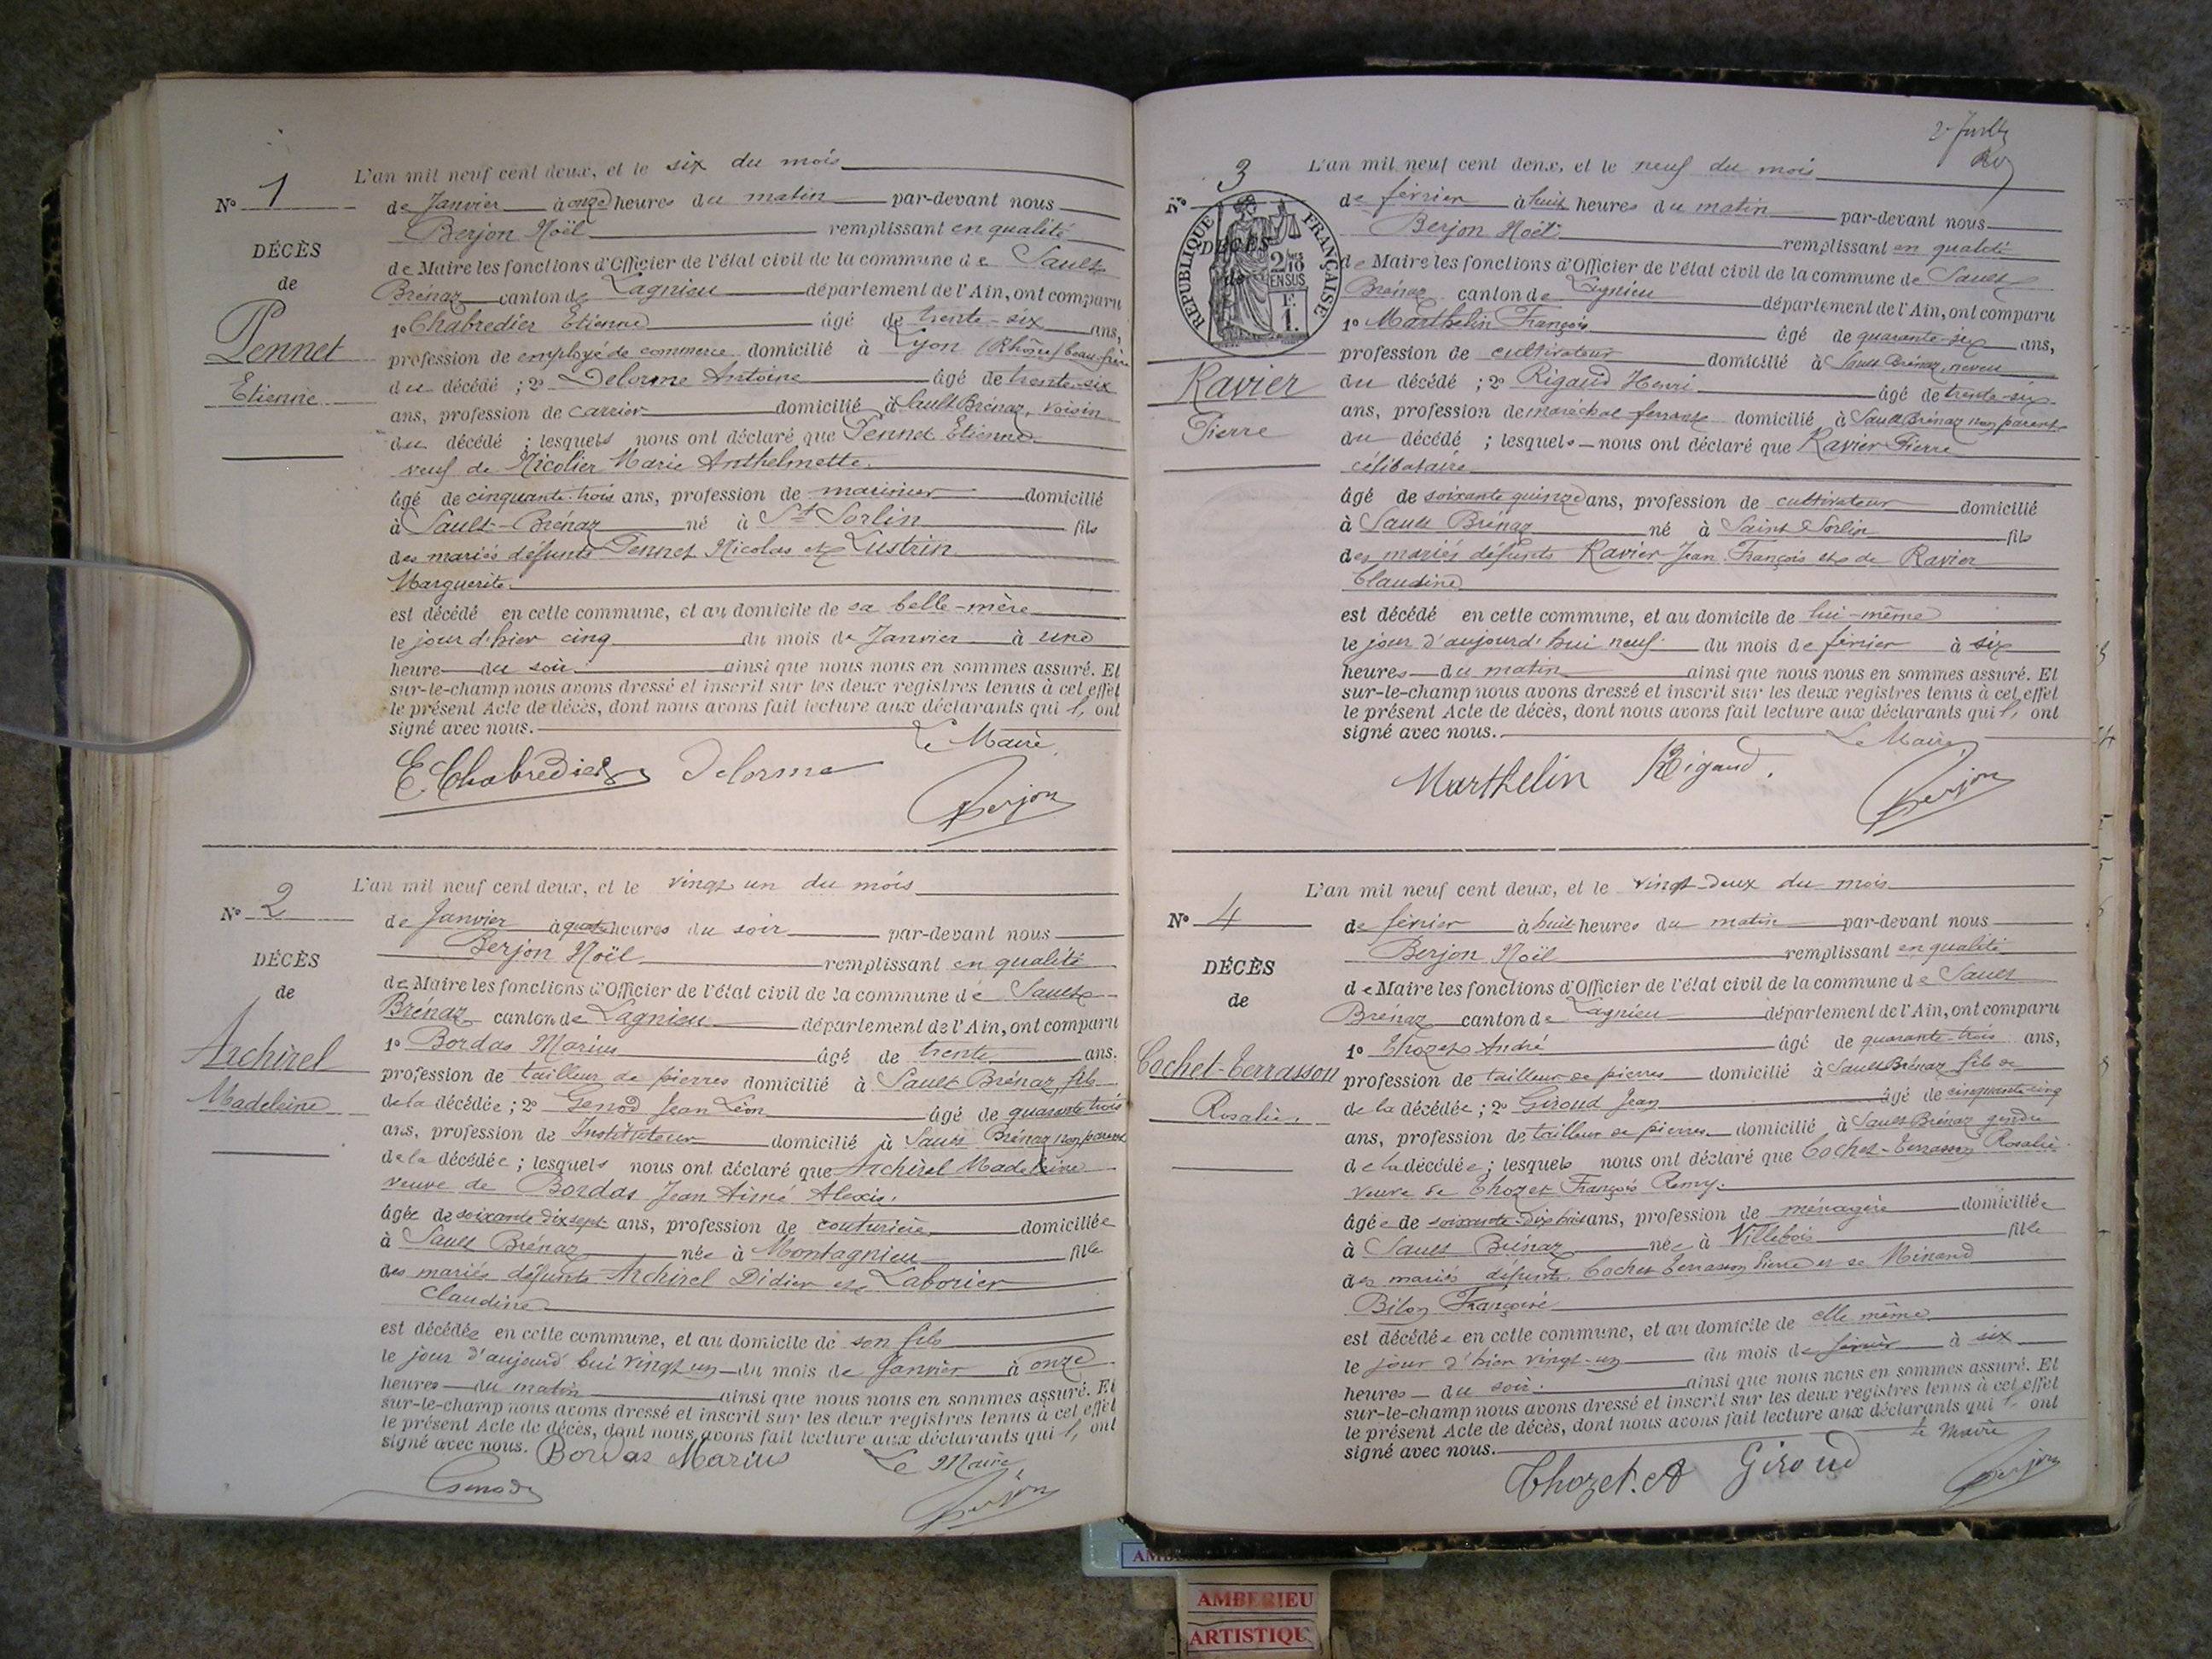 L'an mil neuf cent deux, et le six du mois
N° 1
de Janvier à onze heures du matin par-devant nous
Berjon Noël remplissant en qualité
DÉCÈS
de Maire les fonctions d'Officier de l'état civil de la commune de Sault
de
Brénaz canton de Lagnieu département de l'Ain, ont comparu
1° Chabredier Etienne âgé de trente-six ans,
Pennet
profession de employé de commerce domicilié à Lyon (Rhône) beau-frère
Etienne
du décédé ; 2° Delorme Antoine âgé de trente-six
ans, profession de carrier domicilié à Sault Brénaz, voisin
du décédé ; lesquels nous ont déclaré que Pennet Etienne
veuf de Nicolier Marie Anthelmette.
âgé de cinquante-trois ans, profession de marinier domicilié
à Sault-Brénaz né à St Sorlin fils
des mariés défunts Pennet Nicolas et Lustrin
Marguerite.
est décédé en cette commune, et au domicile de sa belle-mère
le jour d'hier cinq du mois de Janvier à une
heure du soir ainsi que nous nous en sommes assuré. Et
sur-le-champ nous avons dressé et inscrit sur les deux registres tenus à cet effet
le présent Acte de décès, dont nous avons fait lecture aux déclarants qui l, ont
signé avec nous.
Le Maire
E. Chabredier Delorme
Berjon
L'an mil neuf cent deux, et le vingt un du mois
N° 2
de Janvier à quatre heures du soir par-devant nous
Berjon Noël remplissant en qualité
DÉCÈS
de Maire les fonctions d'Officier de l'état civil de la commune de Sault
de
Brénaz canton de Lagnieu département de l'Ain, ont comparu
1° Bordas Marius âgé de trente ans,
Archirel
profession de tailleur de pierres domicilié à Sault Brénaz, fils
Madeleine
de la décédée ; 2° Genod Jean Léon âgé de quarante trois
ans, profession de Instituteur domicilié à Sault Brénaz non parent
de la décédée ; lesquels nous ont déclaré que Archirel Madeleine
veuve de Bordas Jean Aimé Alexis,
âgée de soixante dix sept ans, profession de couturière domiciliée
à Sault Brénaz née à Montagnieu fille
des mariés défunts Archirel Didier et Laborier
Claudine
est décédée en cette commune, et au domicile de son fils
le jour d'aujourd'hui vingt un du mois de Janvier à onze
heures du matin ainsi que nous nous en sommes assuré. Et
sur-le-champ nous avons dressé et inscrit sur les deux registres tenus à cet effet
le présent Acte de décès, dont nous avons fait lecture aux déclarants qui l, ont
signé avec nous. Bordas Marius Le Maire
Genod Berjon
L'an mil neuf cent deux, et le neuf du mois
N° 3
de février à huit heures du matin par-devant nous
Berjon Noël remplissant en qualité
DÉCÈS
de
RÉPUBLIQUE FRANÇAISE
2/10 EN SUS
F. 1.
de Maire les fonctions d'Officier de l'état civil de la commune de Sault
Brénaz canton de Lagnieu département de l'Ain, ont comparu
1° Marthelin François âgé de quarante-six ans,
profession de cultivateur domicilié à Sault Brénaz, neveu
Ravier
du décédé ; 2° Rigaud Henri âgé de trente-six
ans, profession de maréchal ferrant domicilié à Sault Brénaz non parent
Pierre
du décédé ; lesquels nous ont déclaré que Ravier Pierre
célibataire
âgé de soixante quinze ans, profession de cultivateur domicilié
à Sault Brénaz né à Saint Sorlin fils
des mariés défunts Ravier Jean François et de Ravier
Claudine
est décédé en cette commune, et au domicile de lui-même
le jour d'aujourd'hui neuf du mois de février à six
heures du matin ainsi que nous nous en sommes assuré. Et
sur-le-champ nous avons dressé et inscrit sur les deux registres tenus à cet effet
le présent Acte de décès, dont nous avons fait lecture aux déclarants qui l, ont
signé avec nous.
Le Maire
Marthelin Rigaud. Berjon
L'an mil neuf cent deux, et le vingt-deux du mois
N° 4
de février à huit heures du matin par-devant nous
Berjon Noël remplissant en qualité
DÉCÈS
de Maire les fonctions d'Officier de l'état civil de la commune de Sault
de
Brénaz canton de Lagnieu département de l'Ain, ont comparu
1° Thozet André âgé de quarante-trois ans,
Cochet-Terrasson
profession de tailleur de pierres domicilié à Sault Brénaz fils de
Rosalie
de la décédée ; 2° Giroud Jean âgé de cinquante cinq
ans, profession de tailleur de pierres domicilié à Sault Brénaz gendre
de la décédée ; lesquels nous ont déclaré que Cochet-Terrasson Rosalie
veuve de Thozet François Remy.
âgée de ans, profession de ménagère domiciliée
à Sault Brénaz née à Villebois fille
des mariés défunts Cochet Terrasson Pierre et de Minand
Françoise
est décédée en cette commune, et au domicile de elle même
le jour d'hier vingt-un du mois de février à six
heures du soir. ainsi que nous nous en sommes assuré. Et
sur-le-champ nous avons dressé et inscrit sur les deux registres tenus à cet effet
le présent Acte de décès, dont nous avons fait lecture aux déclarants qui l, ont
signé avec nous.
Le Maire
Thozet. A Giroud Berjon
AMBERIEU
ARTISTIQU